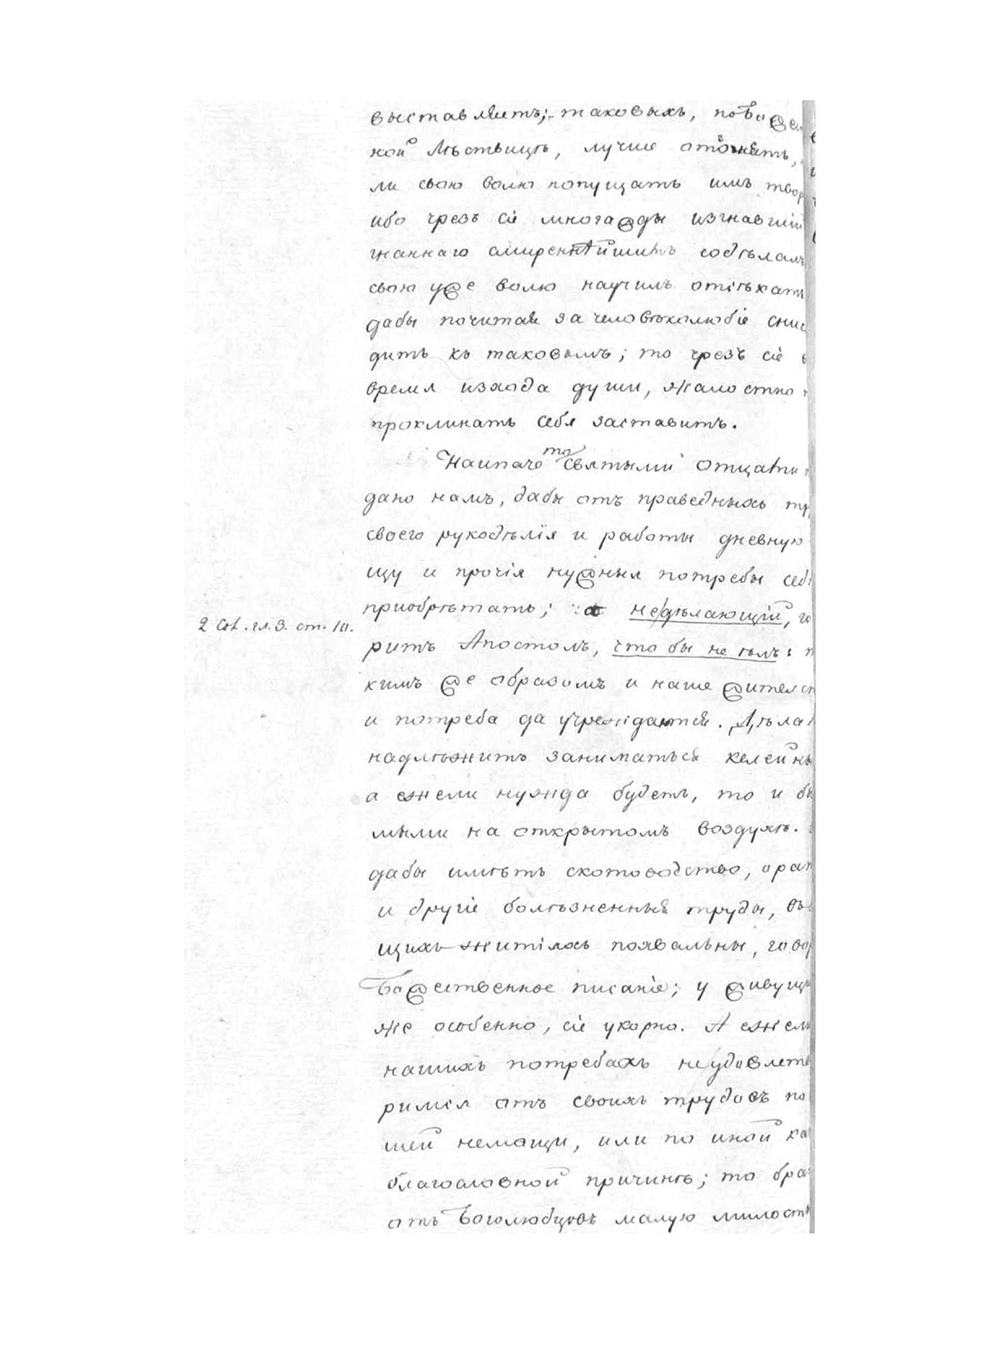 выставлять; таковыхъ, по
ной Лѣствицѣ, лучше отгонять,
ли свою волю попущать имъ твор
ибо чрезъ сіе многажды изгнавшій
гнаннаго смиреннѣйшимъ содѣлалъ
свою уже волю научилъ отсѣкать
дабы почитая за человѣколюбіе снис
дить къ таковымъ; то чрезъ сіе в
время изхода души, жалостно
проклинать себя заставить.
Наипаче то святыми отцами
дано намъ, дабы отъ праведныхъ тр
своего рукодѣлія и работы дневную
щу и прочія нужныя потребы себѣ
приобрѣтать; недѣлающій, го
2 Сол. гл. 3. ст. 10.
ритъ Апостолъ, что бы не ѣлъ: т
кимъ же образомъ и наше жительст
и потреба да учреждаются. Дѣла
надлѣжитъ заниматься келейны
а ежели нужда будетъ, то и бы
мыми на открытомъ воздухѣ.
дабы имѣть скотоводство, оран
и другіе болѣзненныя труды, въ
щихъ житіяхъ похвальны, гово
Божественное писаніе; у живущи
же особенно, сіе укорно. А ежели
нашихъ потребахъ неудовлетв
римся отъ своихъ трудовъ по
шей немощи, или по иной ка
благословной причинѣ; то бра
отъ Боголюбцовъ малую милост